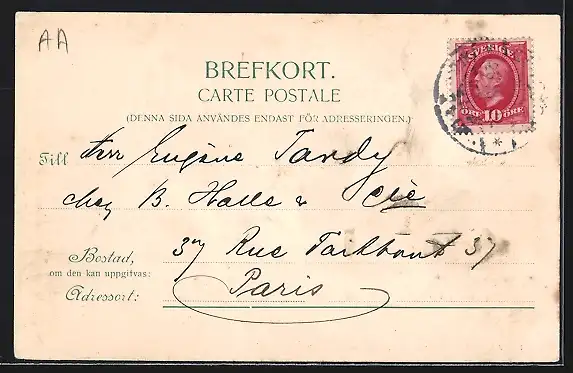 AA
BREFKORT.
CARTE POSTALE
(DENNA SIDA ANVÄNDES ENDAST FÖR ADRESSERINGEN.)
SVERIGE
ÖRE 10 ÖRE
Till Herr Eugène Tardy
chez B. Halle & Cie
37 Rue Taitbout 37
Bostad,
om den kan uppgifvas:
Adressort: Paris